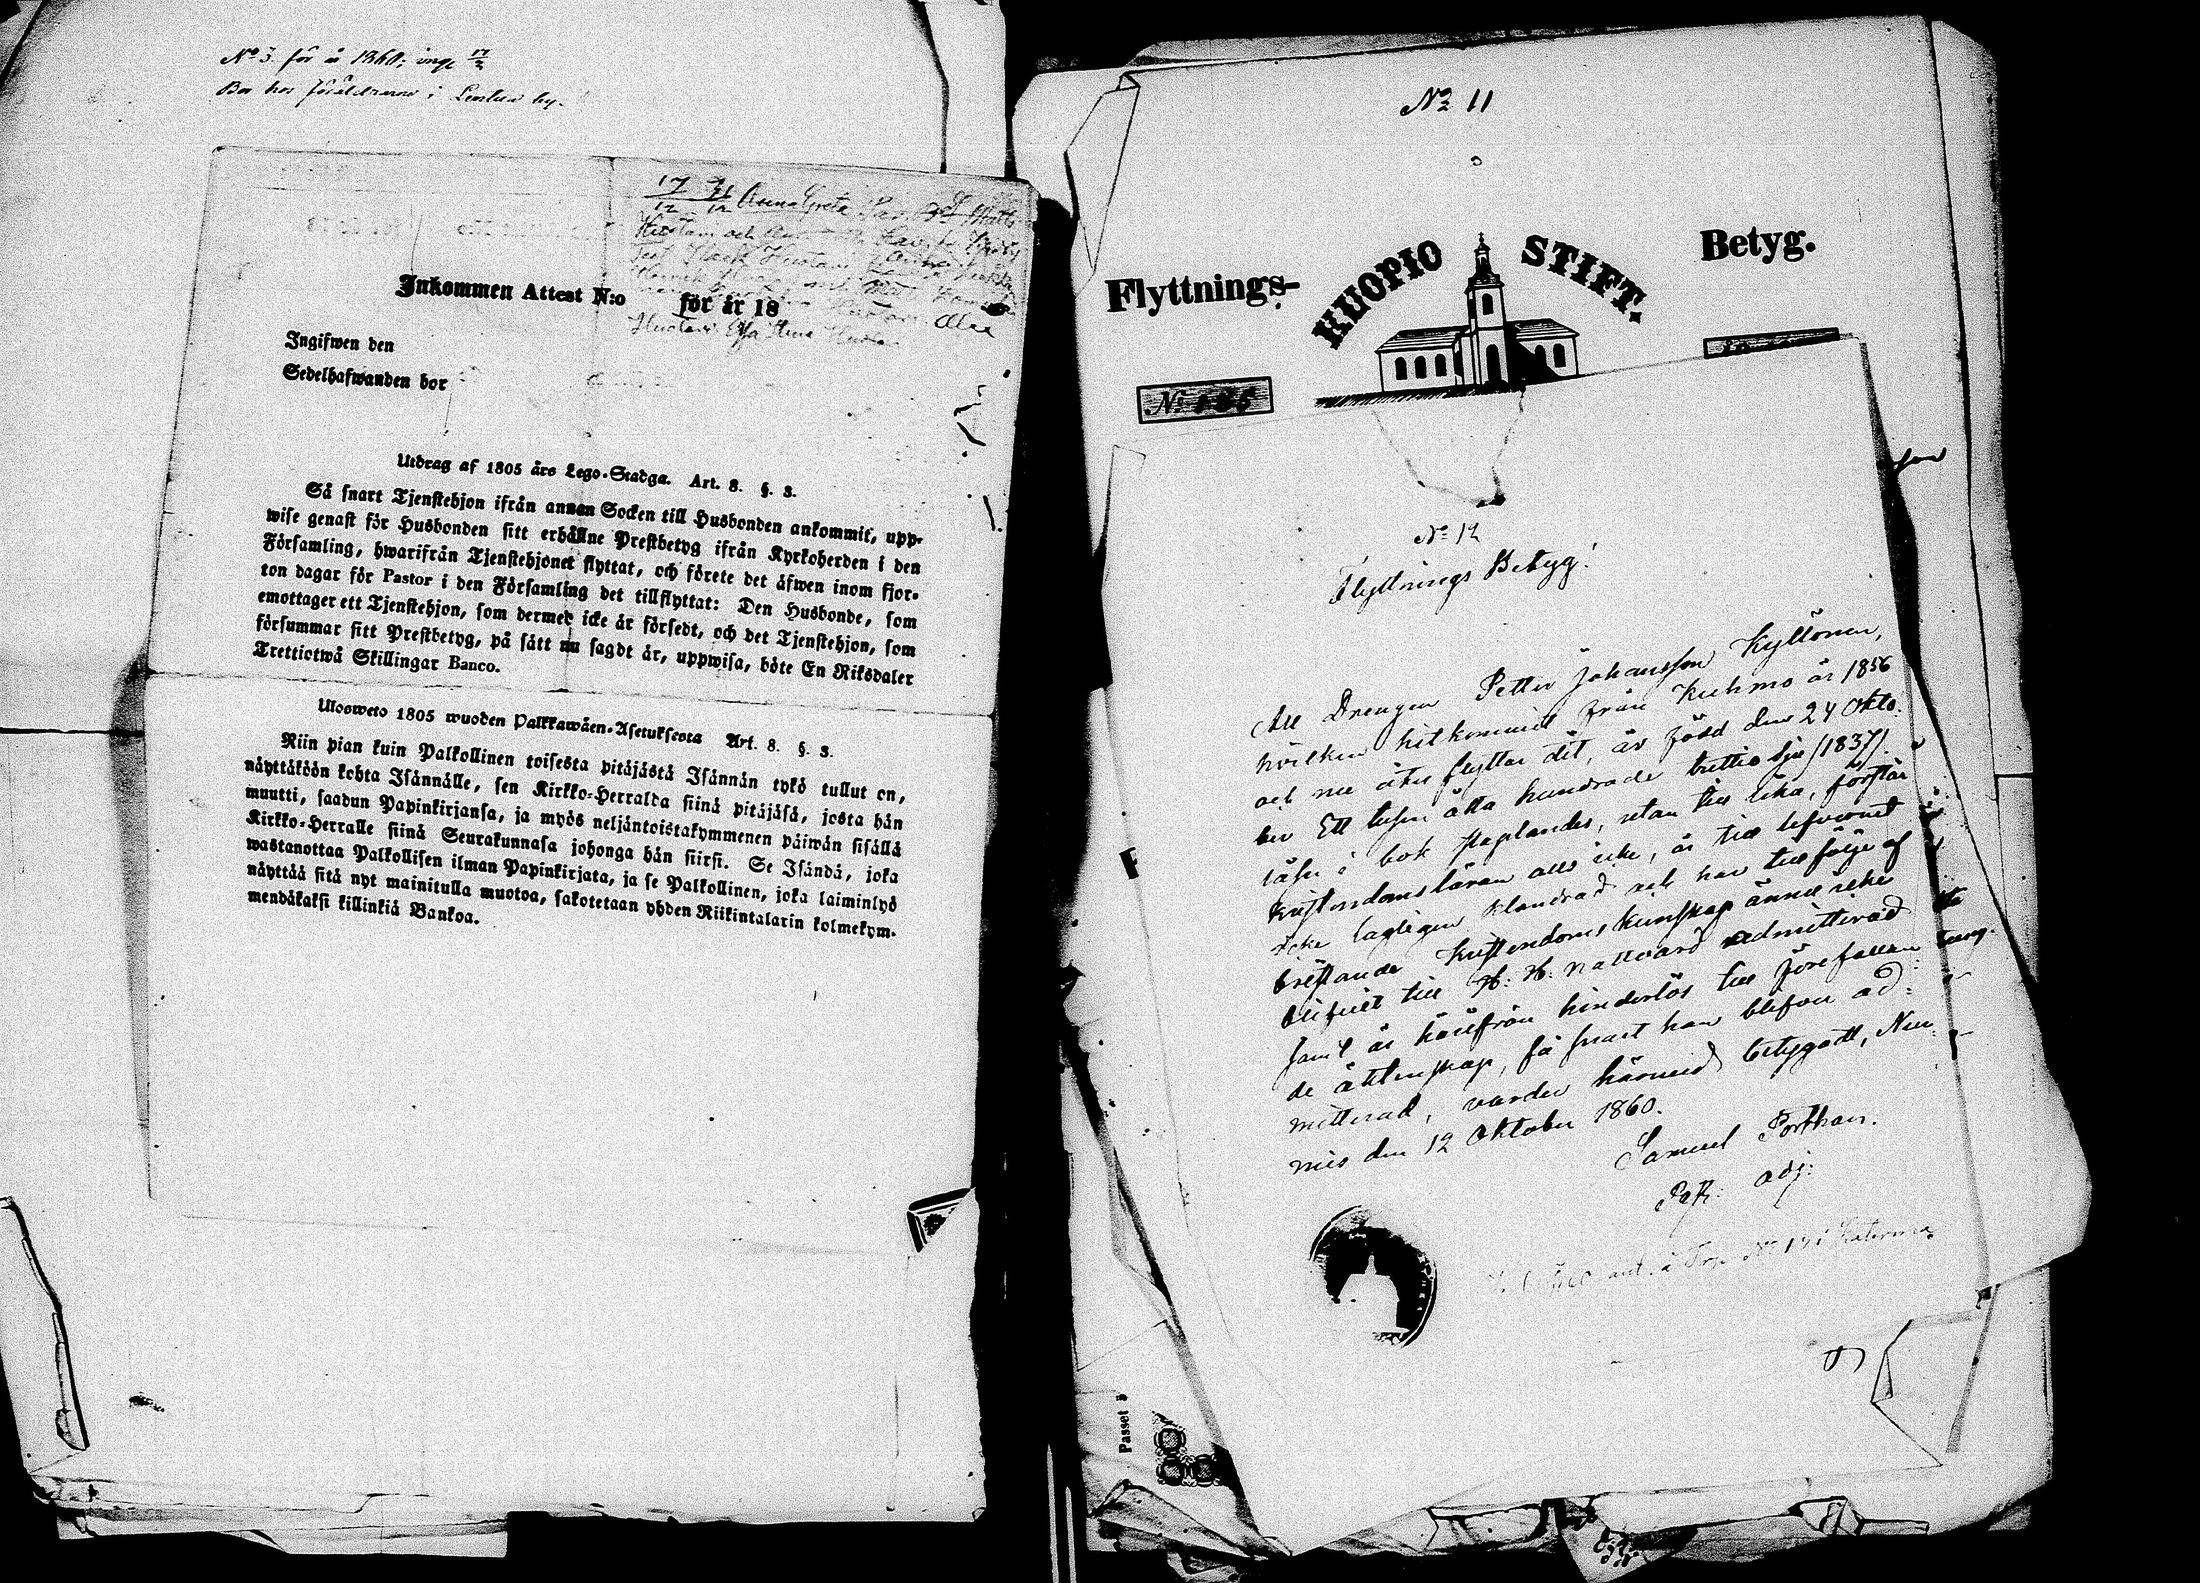 No 3 för år 1860; ing. 17/3
Bor hos föräldrarne i Lentua by.
17/12 31/12 Anna Greta
Inkommen Attest N:o för år 18
Hustru Elsa Stina Hustru
Ingifwen den
Sedelhafwanden bor
Utdrag af 1805 års Lego-Stadga. Art. 8. §. 3.
Så snart Tjenstehjon ifrån annan Socken till Husbonden ankommit, upp-
wise genast för Husbonden sitt erhållne Prestbetyg ifrån Kyrkoherden i den
Församling, hwarifrån Tjenstehjonet flyttat, och förete det äfwen inom fjor-
ton dagar för Pastor i den Församling det tillflyttat: Den Husbonde, som
emottager ett Tjenstehjon, som dermed icke är försedt, och det Tjenstehjon, som
försummar sitt Prestbetyg, på sätt nu sagdt är, uppwisa, böte En Riksdaler
Trettiotwå Skillingar Banco.
Ulosweto 1805 wuoden Palkkawäen-Asetuksesta Art. 8. §. 3.
Niin pian kuin Palkollinen toisesta pitäjästä Isännän tykö tullut on,
näyttäköön kohta Isännälle, sen Kirkko-Herralda siinä pitäjäsä, josta hän
muutti, saadun Papinkirjansa, ja myös neljäntoistakymmenen päiwän sisällä
Kirkko-Herralle siinä Seurakunnasa johonga hän siirsi. Se Isändä, joka
wastanottaa Palkollisen ilman Papinkirjata, ja se Palkollinen, joka laiminlyö
näyttää sitä nyt mainitulla muotoa, sakotetaan yhden Riikintalarin kolmekym-
mendäkaksi killinkiä Bankoa.
No 11
Flyttnings- KUOPIO STIFT. Betyg.
No 185
No 12
Flyttnings Betyg!
Att Drengen Petter Johansson Kyllönen,
hvilken hitkommit från Kuhmo år 1856
och nu åter flyttar dit, är född den 24 Okto-
ber Ett tusen åtta hundrade trettio sju /1837/.
läser i bok staplandes, utan till lika, förstår
kristendomsläran alls icke, är till lefvernet
icke lagligen klandrad och har till följe af
bristande kristendoms kunskap ännu icke
blifvit till H. H. nattvard admitterad
samt är härifrån hinderlös till förefallan-
de äktenskap, så snart han blifver ad-
mitterad, varder härmed betygadt, Nur-
mis den 12 Oktober 1860.
Samuel Porthan.
Past. adj.
Passet